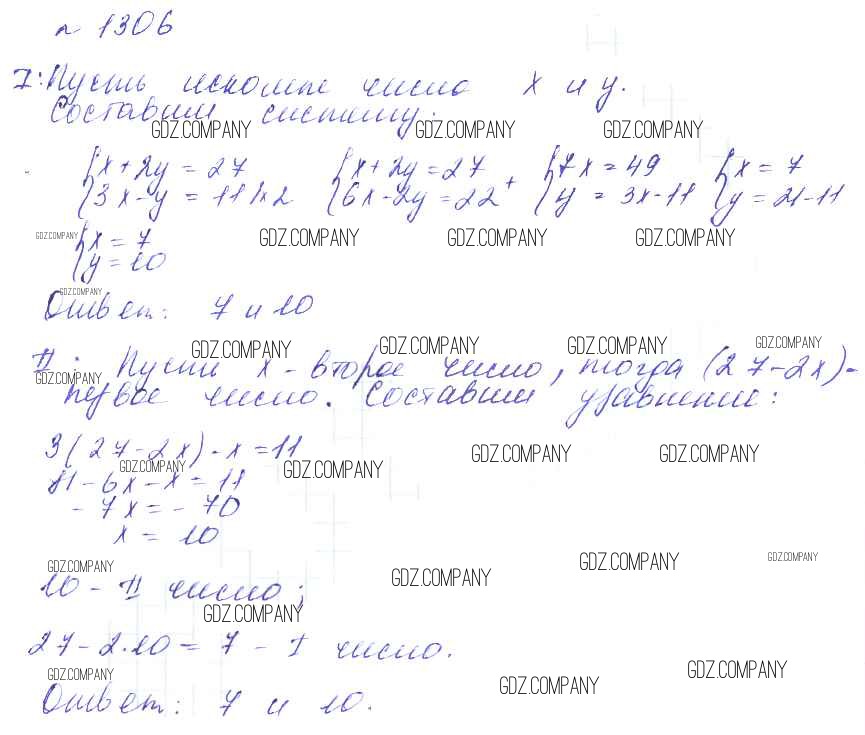 № 1306
I: Пусть искомые числа x и y.
Составим систему:
GDZ.COMPANY GDZ.COMPANY GDZ.COMPANY
{x+2y=27 {x+2y=27 + {7x=49 {x=7
{3x-y=11 |x2 {6x-2y=22 {y=3x-11 {y=21-11
GDZ.COMPANY GDZ.COMPANY GDZ.COMPANY GDZ.COMPANY
{x=7
{y=10
GDZ.COMPANY
Ответ: 7 и 10
GDZ.COMPANY GDZ.COMPANY GDZ.COMPANY GDZ.COMPANY
II: Пусть x - второе число, тогда (27-2x)-
GDZ.COMPANY
первое число. Составим уравнение:
3(27-2x)-x=11
GDZ.COMPANY GDZ.COMPANY GDZ.COMPANY GDZ.COMPANY
81-6x-x=11
-7x=-70
x=10
GDZ.COMPANY GDZ.COMPANY GDZ.COMPANY GDZ.COMPANY
10 - II число;
GDZ.COMPANY
27-2·10=7 - I число.
GDZ.COMPANY GDZ.COMPANY GDZ.COMPANY
Ответ: 7 и 10.